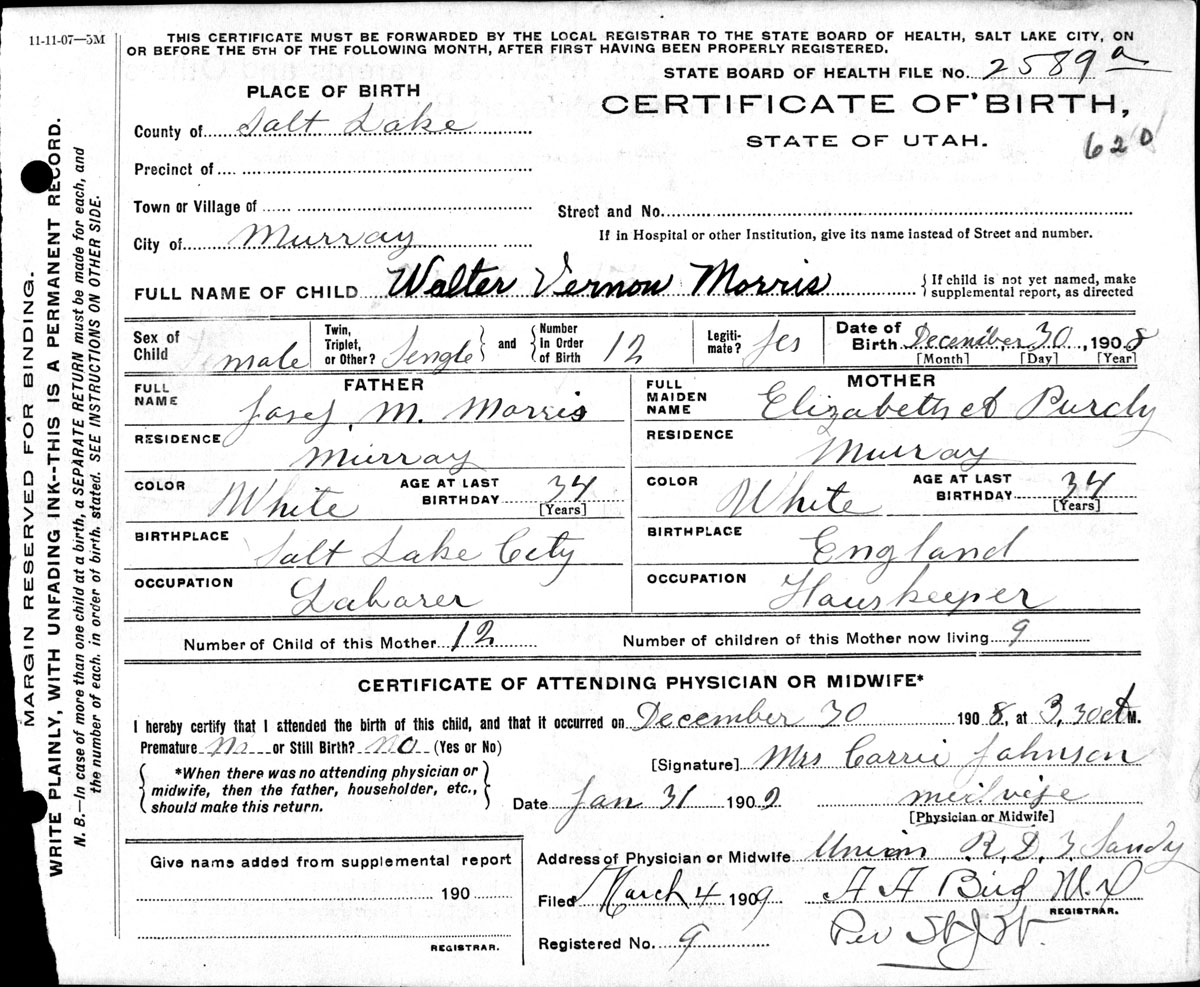 11-11-07—5M
THIS CERTIFICATE MUST BE FORWARDED BY THE LOCAL REGISTRAR TO THE STATE BOARD OF HEALTH, SALT LAKE CITY, ON
OR BEFORE THE 5TH OF THE FOLLOWING MONTH, AFTER FIRST HAVING BEEN PROPERLY REGISTERED.
STATE BOARD OF HEALTH FILE No. 2589a
PLACE OF BIRTH
CERTIFICATE OF BIRTH,
County of Salt Lake
STATE OF UTAH.
620
Precinct of
Town or Village of
Street and No.
City of Murray
If in Hospital or other Institution, give its name instead of Street and number.
FULL NAME OF CHILD Walter Vernon Morris {If child is not yet named, make supplemental report, as directed
Sex of Child male Twin, Triplet, or Other? Sengle and Number In Order of Birth 12 Legitimate? Yes Date of Birth December 30, 1908
[Month] [Day] [Year]
FATHER
MOTHER
FULL NAME Josef M. Morris
FULL MAIDEN NAME Elizabeth A Purdy
RESIDENCE Murray
RESIDENCE Murray
COLOR White AGE AT LAST BIRTHDAY 34 [Years]
COLOR White AGE AT LAST BIRTHDAY 34 [Years]
BIRTHPLACE Salt Lake City
BIRTHPLACE England
OCCUPATION Laborer
OCCUPATION Houskeeper
Number of Child of this Mother 12
Number of children of this Mother now living 9
CERTIFICATE OF ATTENDING PHYSICIAN OR MIDWIFE*
I hereby certify that I attended the birth of this child, and that it occurred on December 30 1908, at 3,30 M.
Premature or Still Birth? no (Yes or No)
[Signature] Mrs Carrie Johnson
*When there was no attending physician or
midwife, then the father, householder, etc.,
should make this return.
Date Jan 31 1909
[Physician or Midwife]
Give name added from supplemental report
190
REGISTRAR.
Address of Physician or Midwife Union R. D. Sandy
Filed March 4 1909 A A Bird M.D
REGISTRAR.
Registered No. 9 Per
MARGIN RESERVED FOR BINDING.
WRITE PLAINLY, WITH UNFADING INK--THIS IS A PERMANENT RECORD.
N. B.—In case of more than one child at a birth, a SEPARATE RETURN must be made for each, and
the number of each, in order of birth, stated. SEE INSTRUCTIONS ON OTHER SIDE.